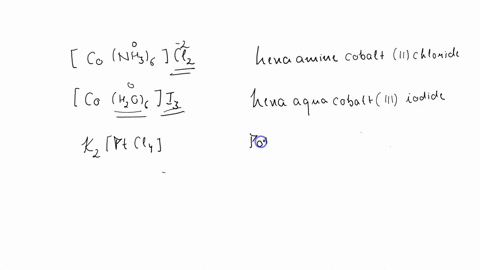 [Co (NH₃)₆] Cl₂ hexaamine cobalt (II) chloride
0 -2
[Co (H₂O)₆] I₃ hexa aqua cobalt (III) iodide
0
K₂ [Pt Cl₄] Po